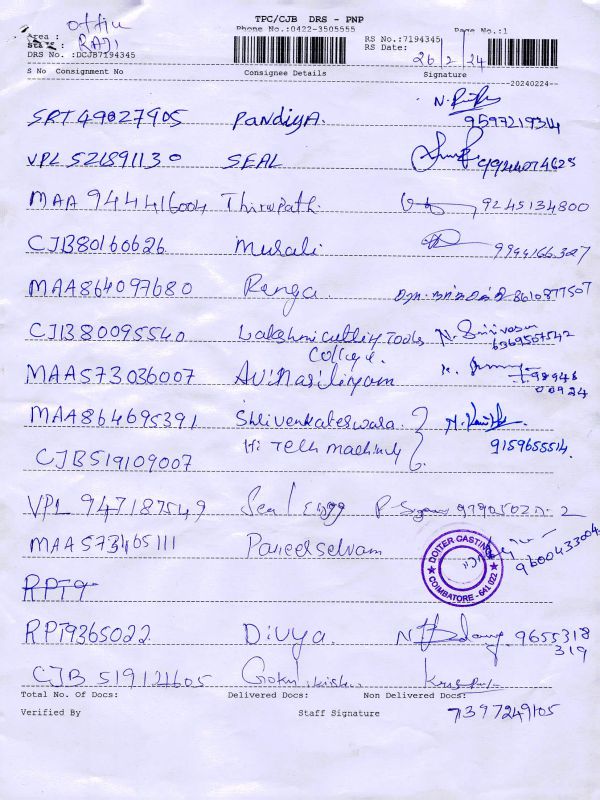 TPC/CJB DRS - PNP
Phone No.:0422-3505555
Page No.:1
office
Area :
RAJI
DRS No. :DCJB7194345
RS No.:7194345
RS Date: 26/2/24
S No Consignment No Consignee Details Signature
20240224
SRT49027905 PandiyA. 9597219314
VPL 521891130 SEAL 9924074625
MAA 944416004 Thirupathi 9245134800
CJB80160626 Murali 9944166307
MAA864097680 Ranga. 8610877507
CJB80095540 Lakshmi cutting Tools N. Srinivasan
College. 6369557542
MAA573036007 Avinasilingam
MAA864695391 Shrivenkateswara.
Hi Tech machinery 9159655514.
CJB519109007
VPL 947187549 Seal Engg
MAA573465111 Paneerselvam 9600433004
DOITER CASTINGS
COIMBATORE - 641 022
RPT9
RPT9365022 Divya. 9655318
319
CJB 519121605 Gokul
Total No. Of Docs: Delivered Docs: Non Delivered Docs:
Verified By Staff Signature 7397249105